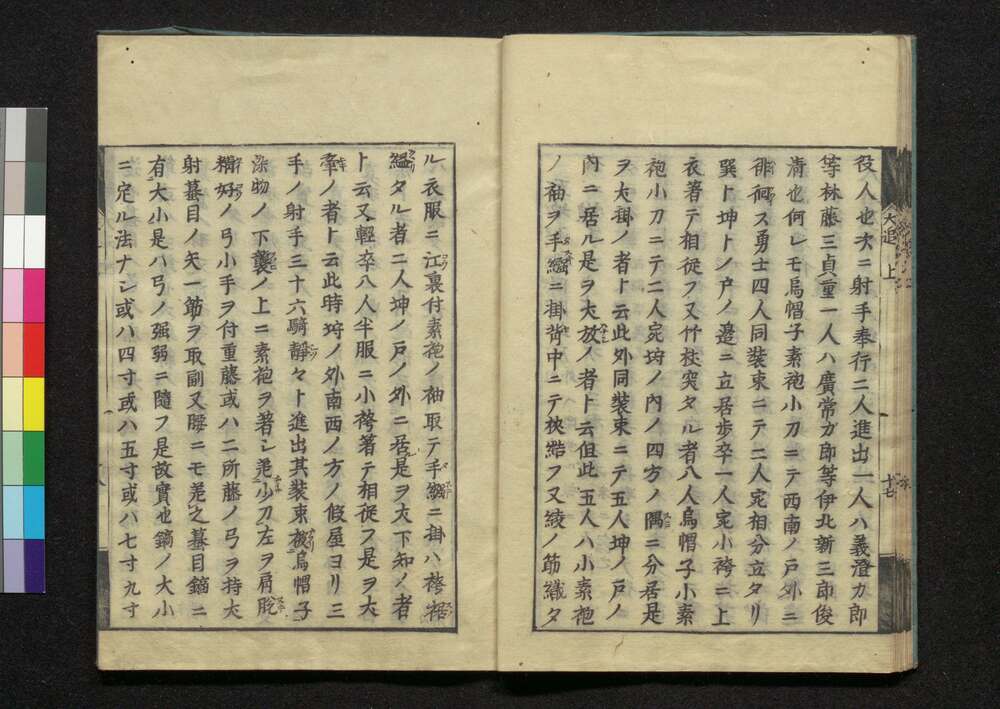 役人也次ニ射手奉行二人進出一人ハ義澄カ郎
等林藤三貞重一人ハ廣常カ郎等伊北新三郎俊
清也何レモ烏帽子素袍小刀ニテ西南ノ戸外ニ
徘徊ス勇士四人同裝束ニテ二人宛相分立タリ
巽ト坤トノ戸ノ邉ニ立居歩卒一人宛小袴ニ上
衣著テ相従フ又竹杖突タル者八人烏帽子小素
袍小刀ニテ二人宛埒ノ内ノ四方ノ隅ニ分居是
ヲ犬掛ノ者ト云此外同裝束ニテ五人坤ノ戸ノ
内ニ居ル是ヲ犬放ノ者ト云但此五人ハ小素袍
ノ袖ヲ手繦ニ掛背中ニテ結フ又綾ノ筋織タ
犬追 上
十七
ル衣服ニ江裏付素袍ノ袖取テ手繦ニ掛ハ袴裾
縕タル者二人坤ノ戸ノ外ニ居是ヲ犬下知ノ者
ト云又輕卒八人半服ニ小袴著テ相従フ是ヲ犬
牽ノ者ト云此時埒ノ外南西ノ方ノ假屋ヨリ三
手ノ射手三十六騎靜々ト進出其裝束梨烏帽子
染物ノ下襲ノ上ニ素袍ヲ著シ差小刀左ヲ肩脱
好ノ弓小手ヲ付重藤或ハ二所藤ノ弓ヲ持犬
射蟇目ノ矢一筋ヲ取副又腰ニモ差之蟇目鏑ニ
有大小是ハ弓ノ强弱ニ隨フ是故實也鏑ノ大小
ニ定ル法ナシ或ハ四寸或ハ五寸或ハ七寸九寸